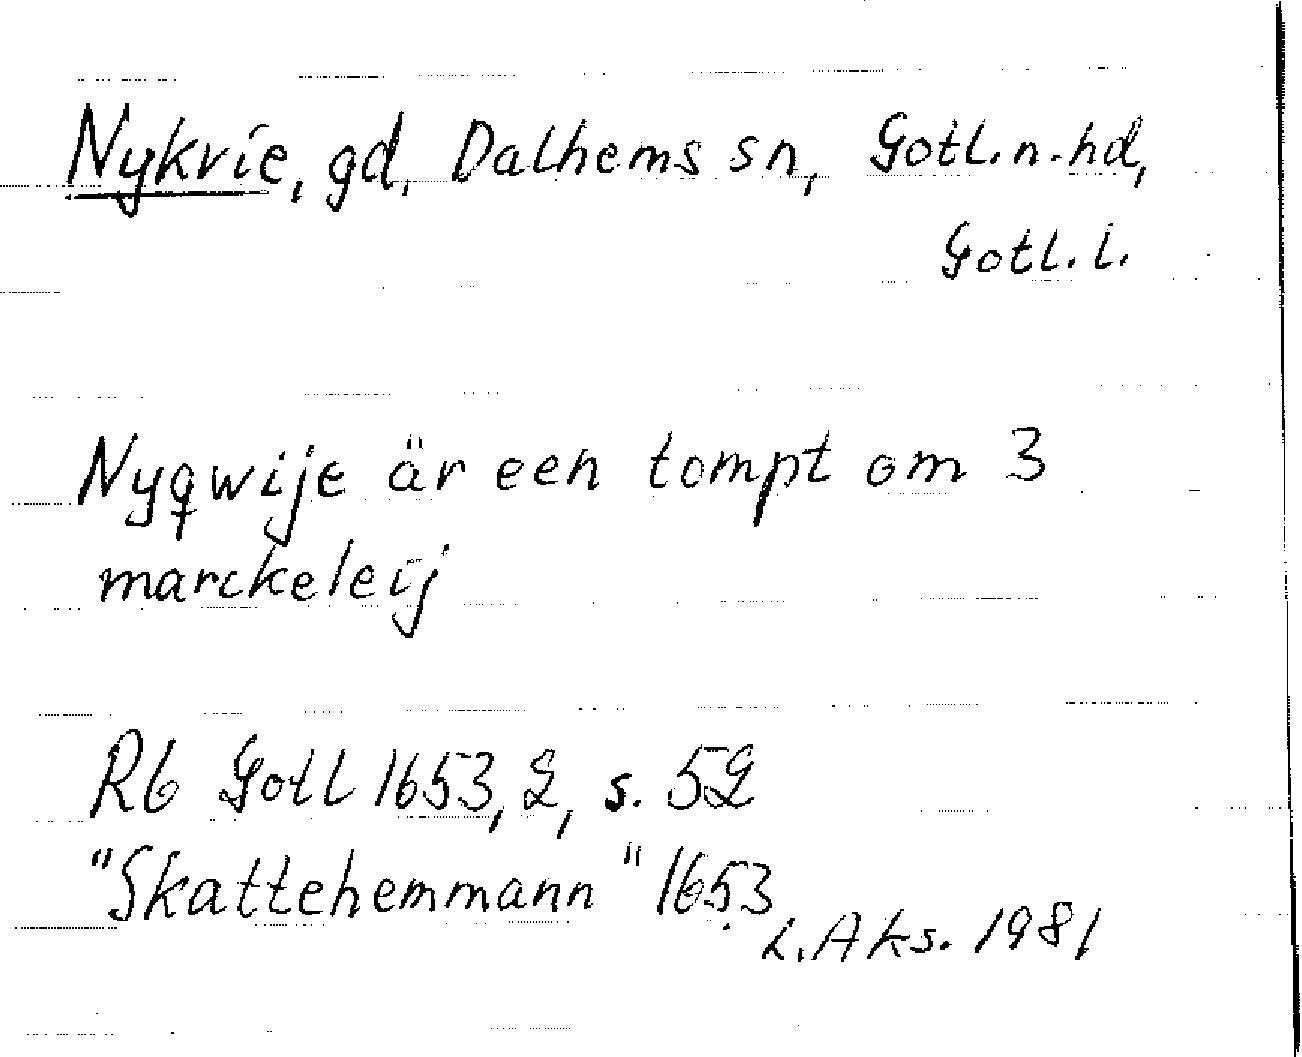 Nykvie, gd, Dalhems sn, Gotl.n.hd,
Gotl.l.
Nyqwije är een tompt om 3
marckeleij
Rb Gotl 1653, 2, s. 52
"Skattehemmann" 1653
L. Aks. 1981